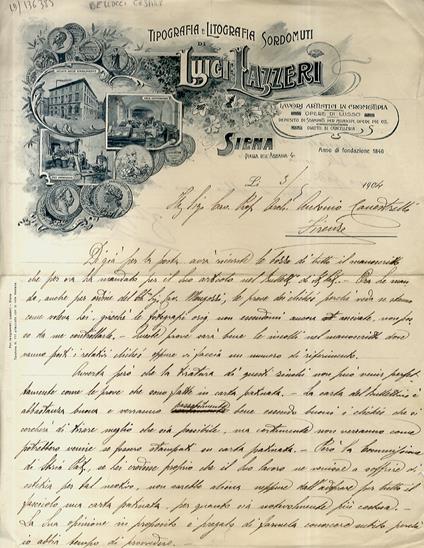 BELLUCCI CESARE
TIPOGRAFIA E LITOGRAFIA SORDOMUTI
DI
LUIGI LAZZERI
LAVORI ARTISTICI IN CROMOTIPIA
OPERE DI LUSSO
DEPOSITO DI STAMPATI PER MUNICIPI, OPERE PIE ECC.
OGGETTI DI CANCELLERIA
SIENA
Anno di fondazione 1840
Li 3 1904
Antonio Canestrelli
Firenze
Di già per la posta avrà ricevuto le bozze di tutto il manoscritto
che per ora ha mandato per il suo articolo nel Bullett. di St. Pat. - Ora le man
do, anche per ordine del le prove dei clichés perchè veda se stanno
come voleva lei, giacchè le fotografie orig. non essendomi ancora state inviate, non pos
so da me controllarle. - Queste prove sarà bene le incolli nel manoscritto dove
vanno posti i relativi clichés oppure vi faccia un numero di riferimento.
Avverta però che la tiratura di questi zinchi non può venir perfet
tamente come le prove che sono fatte in carta patinata. - La carta del bullettino è
abbastanza buona e verranno bene essendo buoni i clichés che ci
cercherà di tirare meglio che sia possibile, ma certamente non verranno come
potrebbero venire se fossero stampati su carta patinata. - Però la Commissione
di Storia Pat., se lei credesse proprio che il suo lavoro ne venisse a soffrire di
estetica per tal motivo, non sarebbe aliena neppure dall'adoprare per tutto il
fascicolo una carta patinata, per quanto sia notevolmente più costosa. -
La sua opinione in proposito è pregato di farmela conoscere subito perchè
io abbia tempo di provvedere. -